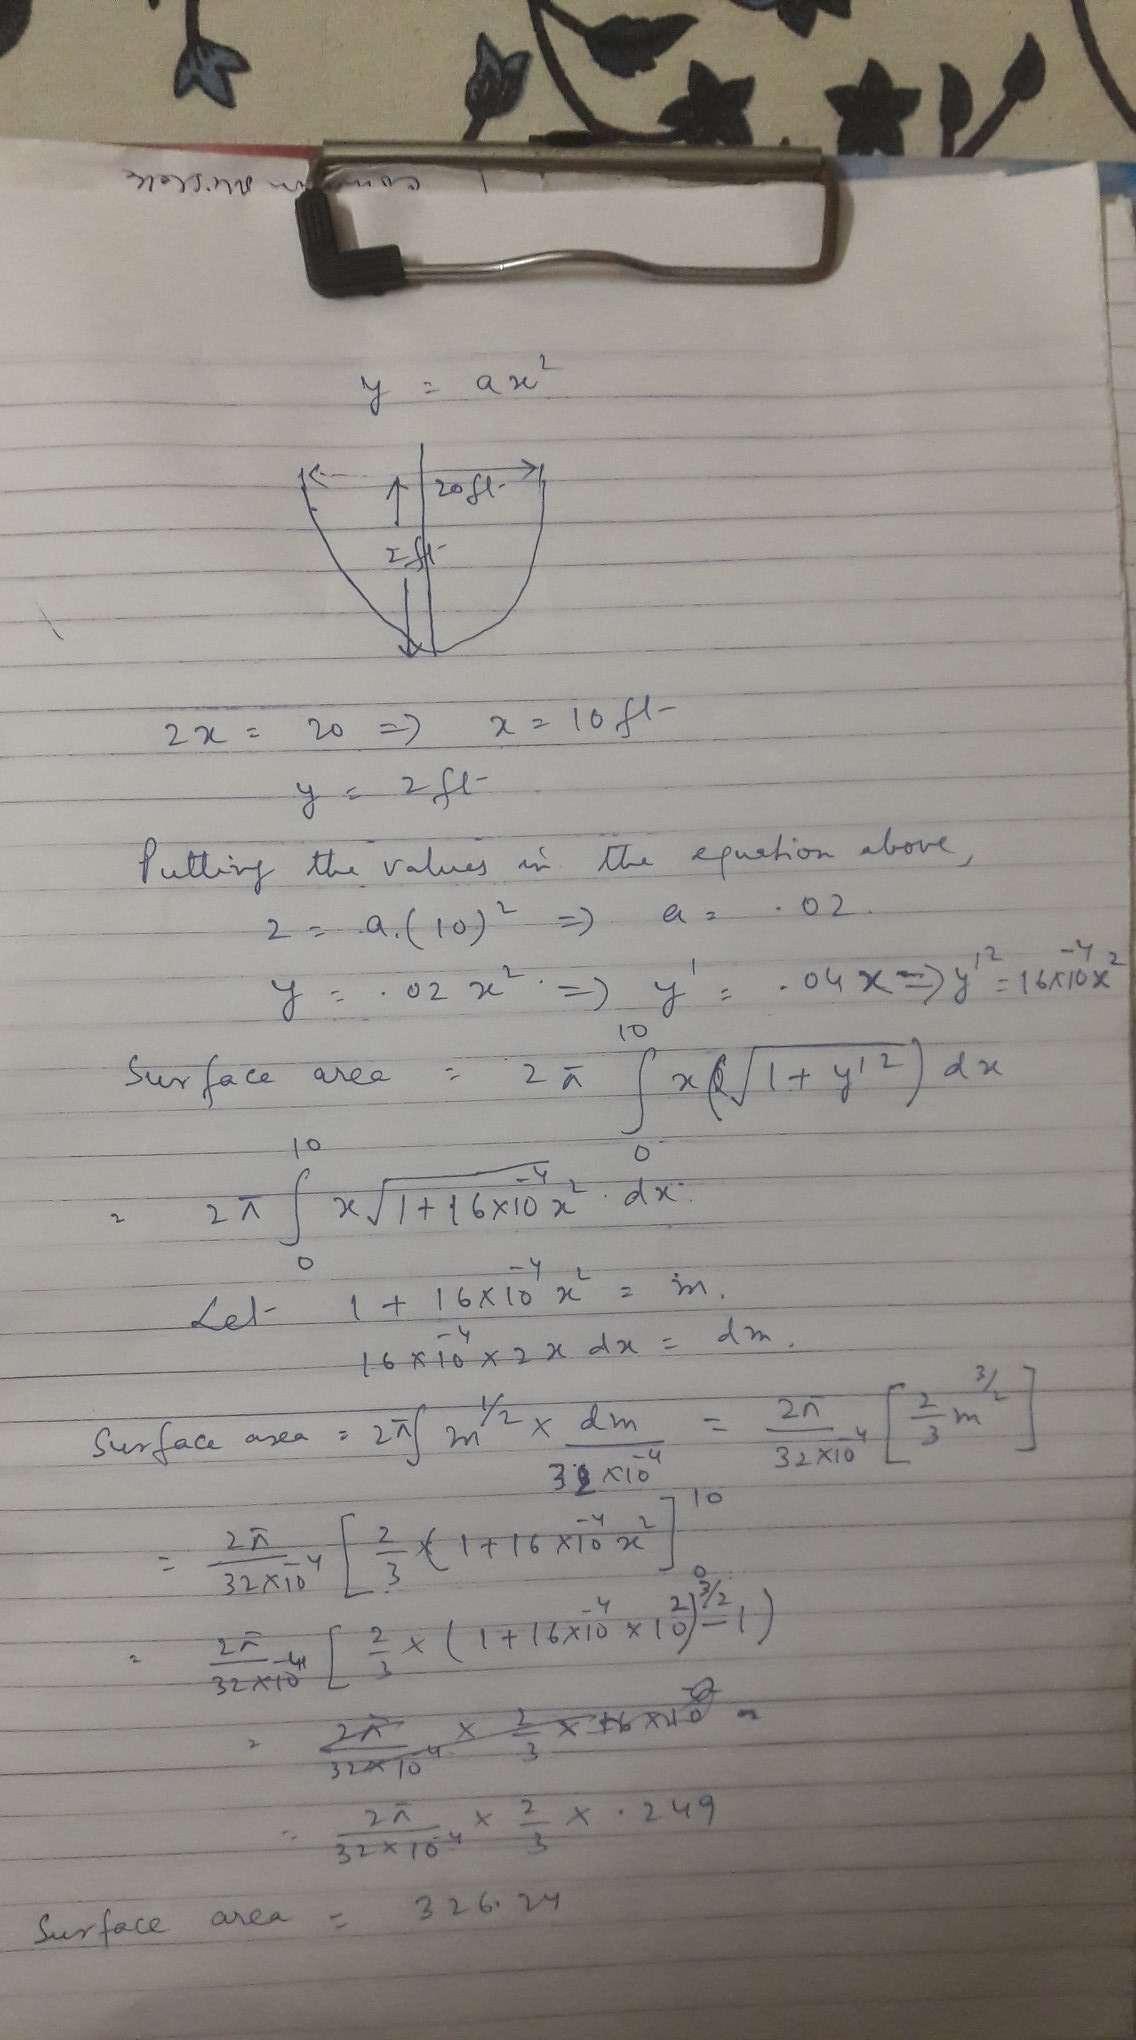 y = ax²
20ft
2ft
2x = 20 => x = 10ft
y = 2ft
Putting the values in the equation above,
2 = a.(10)² => a = .02.
y = .02x² => y' = .04x => y'² = 16×10⁻⁴x²
Surface area = 2π ∫₀¹⁰ x(√1+y'²) dx
= 2π ∫₀¹⁰ x√1+16×10⁻⁴x² · dx.
Let 1 + 16×10⁻⁴ x² = m.
16×10⁻⁴×2x dx = dm.
Surface area = 2π∫ m^1/2 × dm/32×10⁻⁴ = 2π/32×10⁻⁴ [2/3 m^3/2]
= 2π/32×10⁻⁴ [2/3 × (1+16×10⁻⁴x²]₀¹⁰
= 2π/32×10⁻⁴ [2/3 × (1+16×10⁻⁴×10²)^3/2 - 1)
= 2π/32×10⁻⁴ × 2/3 × 16×10⁻² =
= 2π/32×10⁻⁴ × 2/3 × .249
Surface area = 326.24